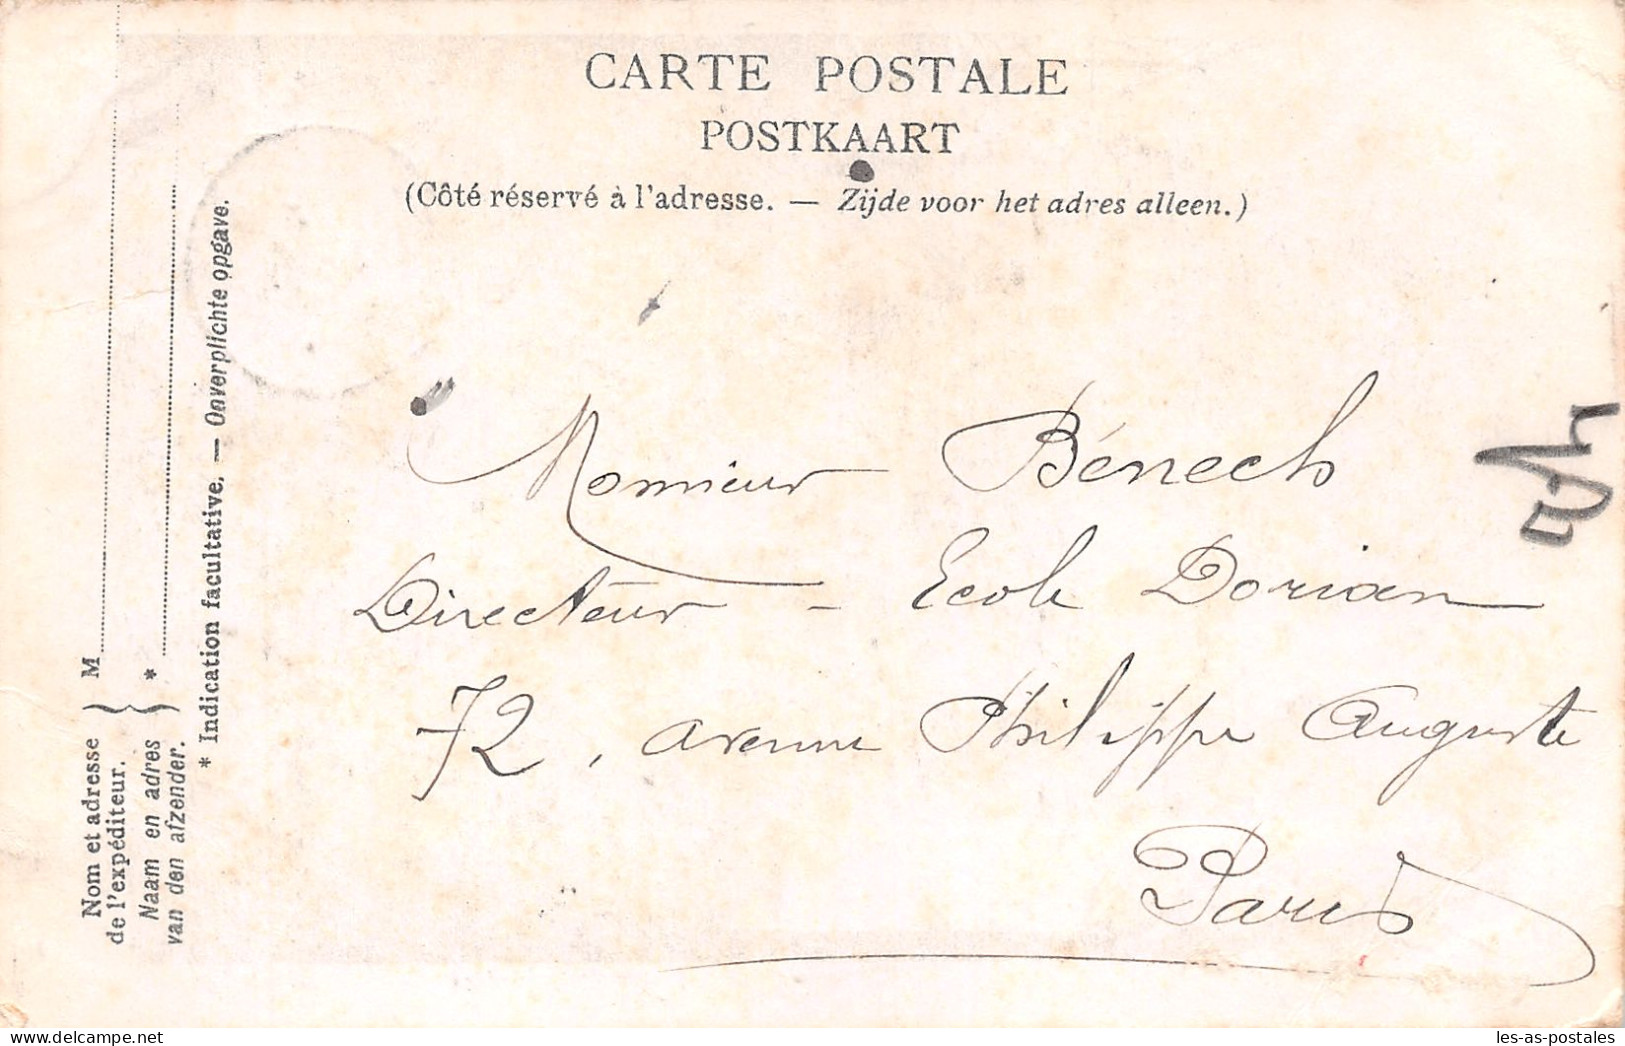 CARTE POSTALE
POSTKAART
(Côté réservé à l'adresse. — Zijde voor het adres alleen.)
Monsieur Bénech
Directeur - Ecole Dorian
72, avenue Philippe Auguste
Paris
Nom et adresse de l'expéditeur. } M
Naam en adres van den afzender. } *
* Indication facultative. — Onverplichte opgave.
les-as-postales